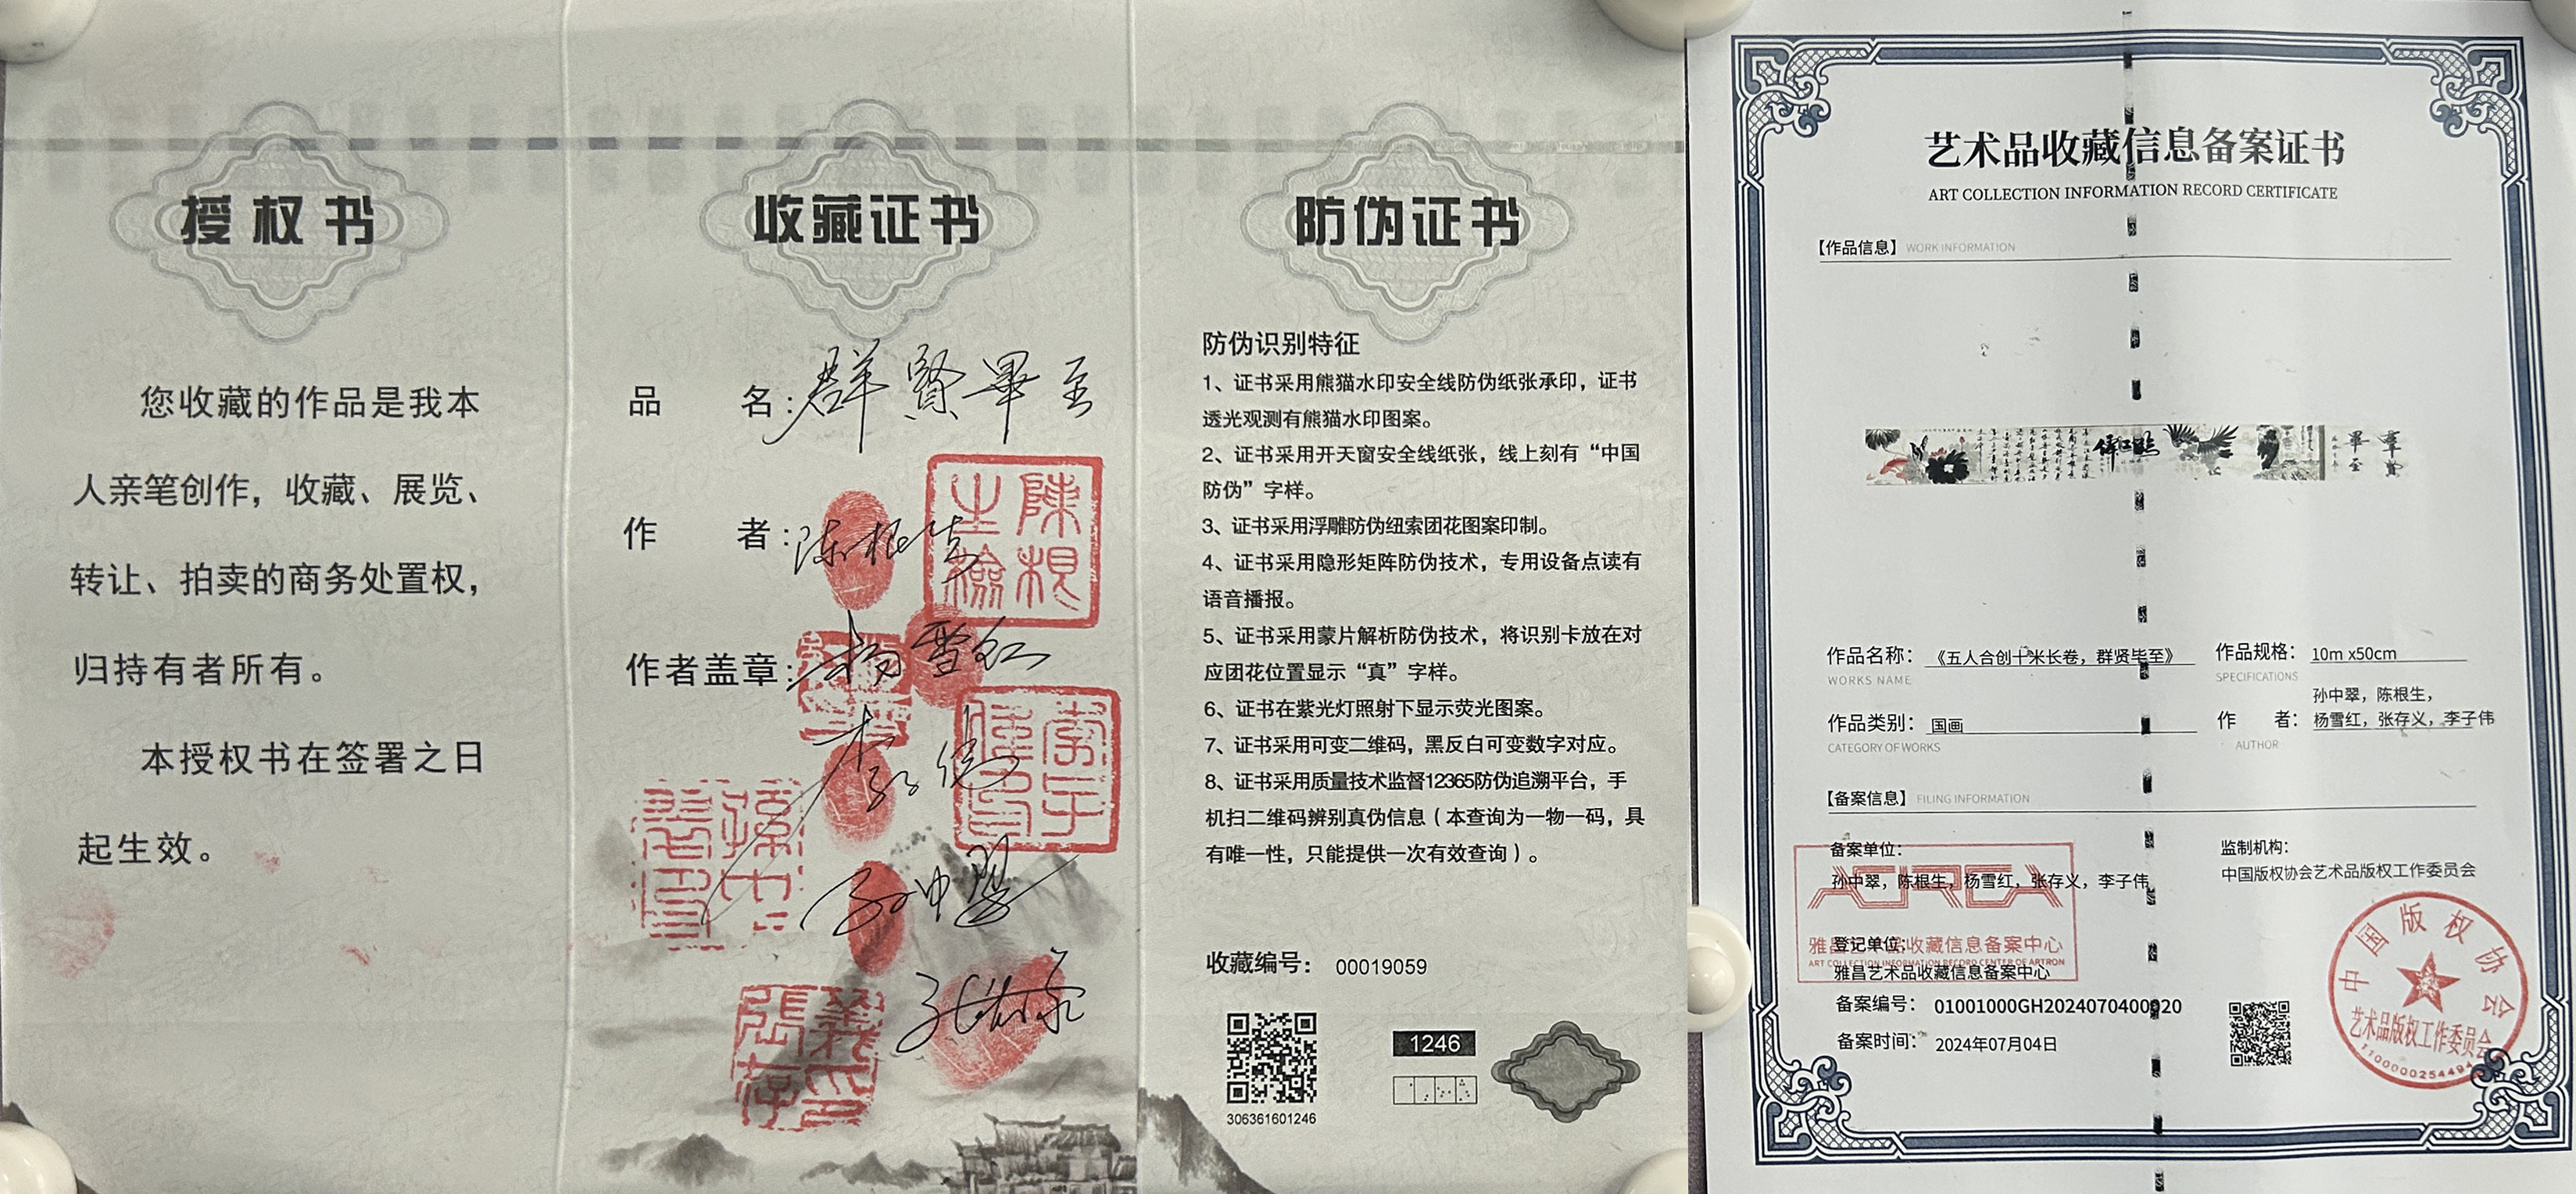 授权书
您收藏的作品是我本
人亲笔创作，收藏、展览、
转让、拍卖的商务处置权，
归持有者所有。
本授权书在签署之日
起生效。
收藏证书
品 名：群賢畢至
作 者：陈根生
陳根生
作者盖章：杨雪红
李子伟
李子偉印
孙中翠
孫中翠印
张存义
張存義印
防伪证书
防伪识别特征
1、证书采用熊猫水印安全线防伪纸张承印，证书
透光观测有熊猫水印图案。
2、证书采用开天窗安全线纸张，线上刻有“中国
防伪”字样。
3、证书采用浮雕防伪纽索团花图案印制。
4、证书采用隐形矩阵防伪技术，专用设备点读有
语音播报。
5、证书采用蒙片解析防伪技术，将识别卡放在对
应团花位置显示“真”字样。
6、证书在紫光灯照射下显示荧光图案。
7、证书采用可变二维码，黑反白可变数字对应。
8、证书采用质量技术监督12365防伪追溯平台，手
机扫二维码辨别真伪信息（本查询为一物一码，具
有唯一性，只能提供一次有效查询）。
收藏编号： 00019059
1246
306361601246
艺术品收藏信息备案证书
ART COLLECTION INFORMATION RECORD CERTIFICATE
【作品信息】 WORK INFORMATION
羣賢
畢至
作品名称： 《五人合创十米长卷，群贤毕至》
WORKS NAME
作品规格： 10m x50cm
SPECIFICATIONS
作品类别： 国画
CATEGORY OF WORKS
孙中翠，陈根生，
作 者： 杨雪红，张存义，李子伟
AUTHOR
【备案信息】 FILING INFORMATION
备案单位：
孙中翠，陈根生，杨雪红，张存义，李子伟
监制机构：
中国版权协会艺术品版权工作委员会
ACIRCA
登记单位：
雅昌艺术品收藏信息备案中心
ART COLLECTION INFORMATION RECORD CENTER OF ARTRON
雅昌艺术品收藏信息备案中心
备案编号： 01001000GH2024070400920
备案时间： 2024年07月04日
中国版权协会
艺术品版权工作委员会